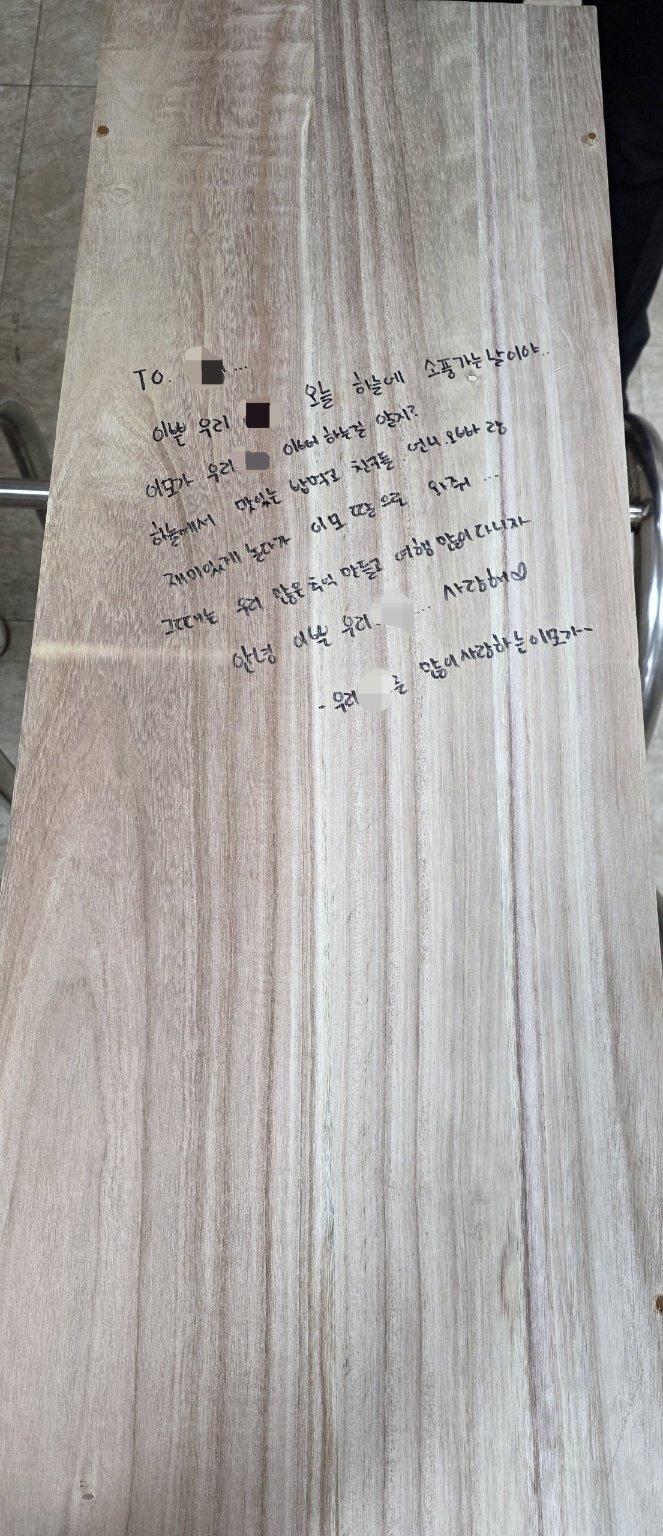 TO. ...
이쁜 우리 오늘 하늘에 소풍가는 날이야..
이모가 우리 이뻐하는걸 알지?
하늘에서 맛있는 밥먹고 친구들 언니.오빠랑
재미있게 놀다가 이모 딸으로 와줘...
그때는 우리 많은추억 만들고 여행 많이 다니자
안녕 이쁜 우리... 사랑해♡
- 우리 를 많이 사랑하는 이모가-